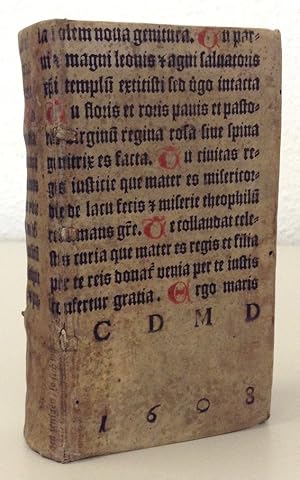 la solem noua genitura. Tu par-
ui & magni leonis & agni saluatoris
xpi templū extitisti sed v̄go intacta
Tu floris et roris panis et pasto-
virginū regina rosa sine spina
genitrix es facta. Tu ciuitas re-
gis iusticie que mater es misericor-
die de lacu fecis & miserie theophilū
mans gr̄e. Te collaudat cele-
stis curia que mater es regis et filia
per te reis donat̄ venia per te iustis
confertur gratia. Ergo maris
C D M D
1 6 0 8